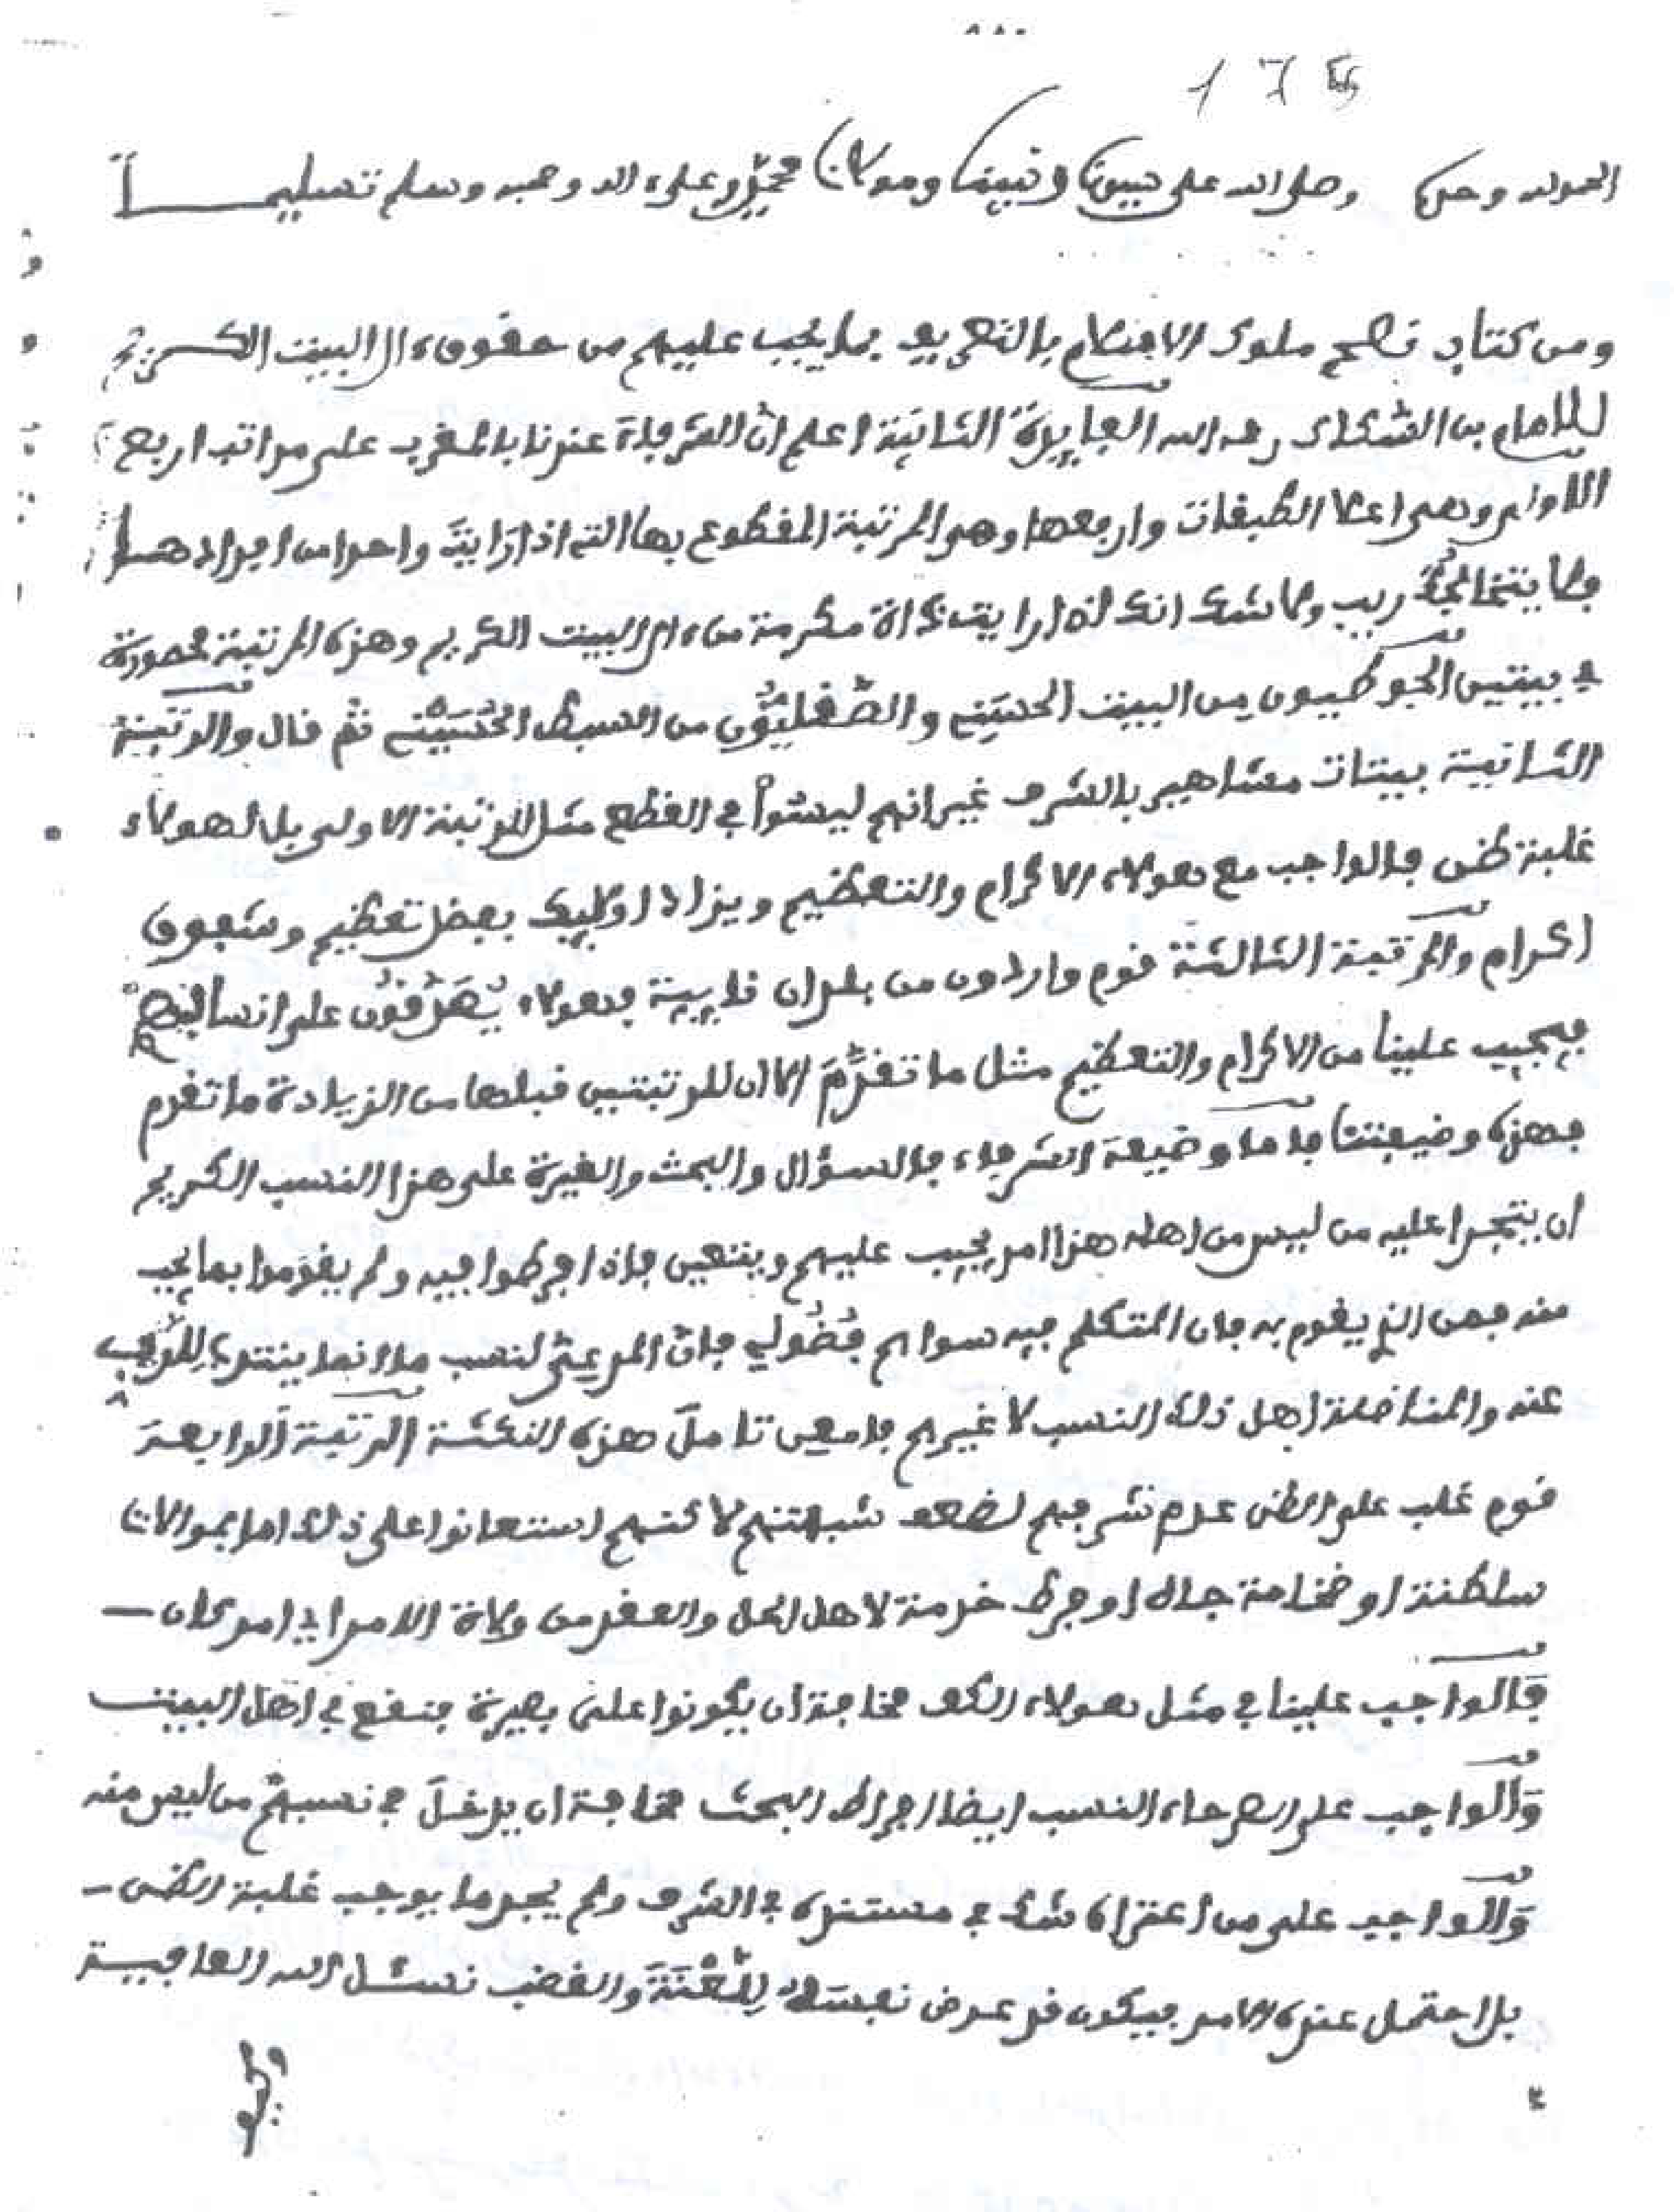 175
الحمد لله وحده وصلى الله على سيدنا ونبينا ومولانا محمد وعلى ءاله وصحبه وسلم تسليما
ومن كتاب نصح ملوك الاسلام بالتعريف بما يجب عليهم من حقوق ءال البيت الكريم
للامام بن السكاك رحمه الله الفايدة الثانية اعلم ان الشرفاء عندنا بالمغرب على مراتب اربع
الاولى وهي اعلا الطبقات وارفعها وهو المرتبة المقطوع بها التي اذا رايت واحدا من افرادها
فلا يتخالجك ريب ولا شك انك اذا رايت ذاة مكرمة من ءال البيت الكريم وهذه المرتبة محصورة
في بيتين الجوطيون من البيت الحسني والصقليون من السبط الحسيني ثم قال والرتبة
الثانية بيتات مشاهير بالشرف غير انهم ليسوا في القطع مثل الرتبة الاولى بل لهولاء
غلبة ظن فالواجب مع هولاء الاكرام والتعظيم ويزاد اوليك بعض تعظيم وشفوف
اكرام والمرتبة الثالثة قوم واردون من بلدان فهولاء يصدقون على انسابهم
فيجب علينا من الاكرام والتعظيم مثل ما تقدم الا ان للرتبتين قبلها من الزيادة ما تقدم
فهذه وضيفتنا فاما وضيفة الشرفاء فالسؤال والبحث والغيرة على هذا النسب الكريم
ان يتجرا عليه من ليس من اهله هذا امر يجب عليهم ويتعين فاذا فرطوا فيه ولم يقوموا بما يجب
منه فمن الذي يقوم به فان المتكلم فيه سواهم فضولي فان المدعي لنسب ما انما ينتدب للذب
عنه والمناضلة اهل ذلك النسب لا غيرهم فامعن تامل هذه النكتة الرتبة الرابعة
قوم غلب على الظن عدم شرفهم لضعف شبهتهم لاكنهم استعانوا على ذلك اما بموالات
سلطنة او ضخامة جاه او فرط خدمة لاهل الحل والعقد من ولاة الامر اي امر كان
فالواجب علينا في مثل هولاء الكف مخافة ان يكونوا على بصيرة فنقع في اهل البيت
والواجب على الصرحاء النسب ايضا افراط البحث مخافة ان يدخل في نسبهم من ليس منه
والواجب على من اعتراه شك في مستنده في الشرف ولم يجد ما يوجب غلبة الظن
بل احتمل عنده الامر فيكون قد عرض نفسه للعنة والغضب نسئل الله العافية